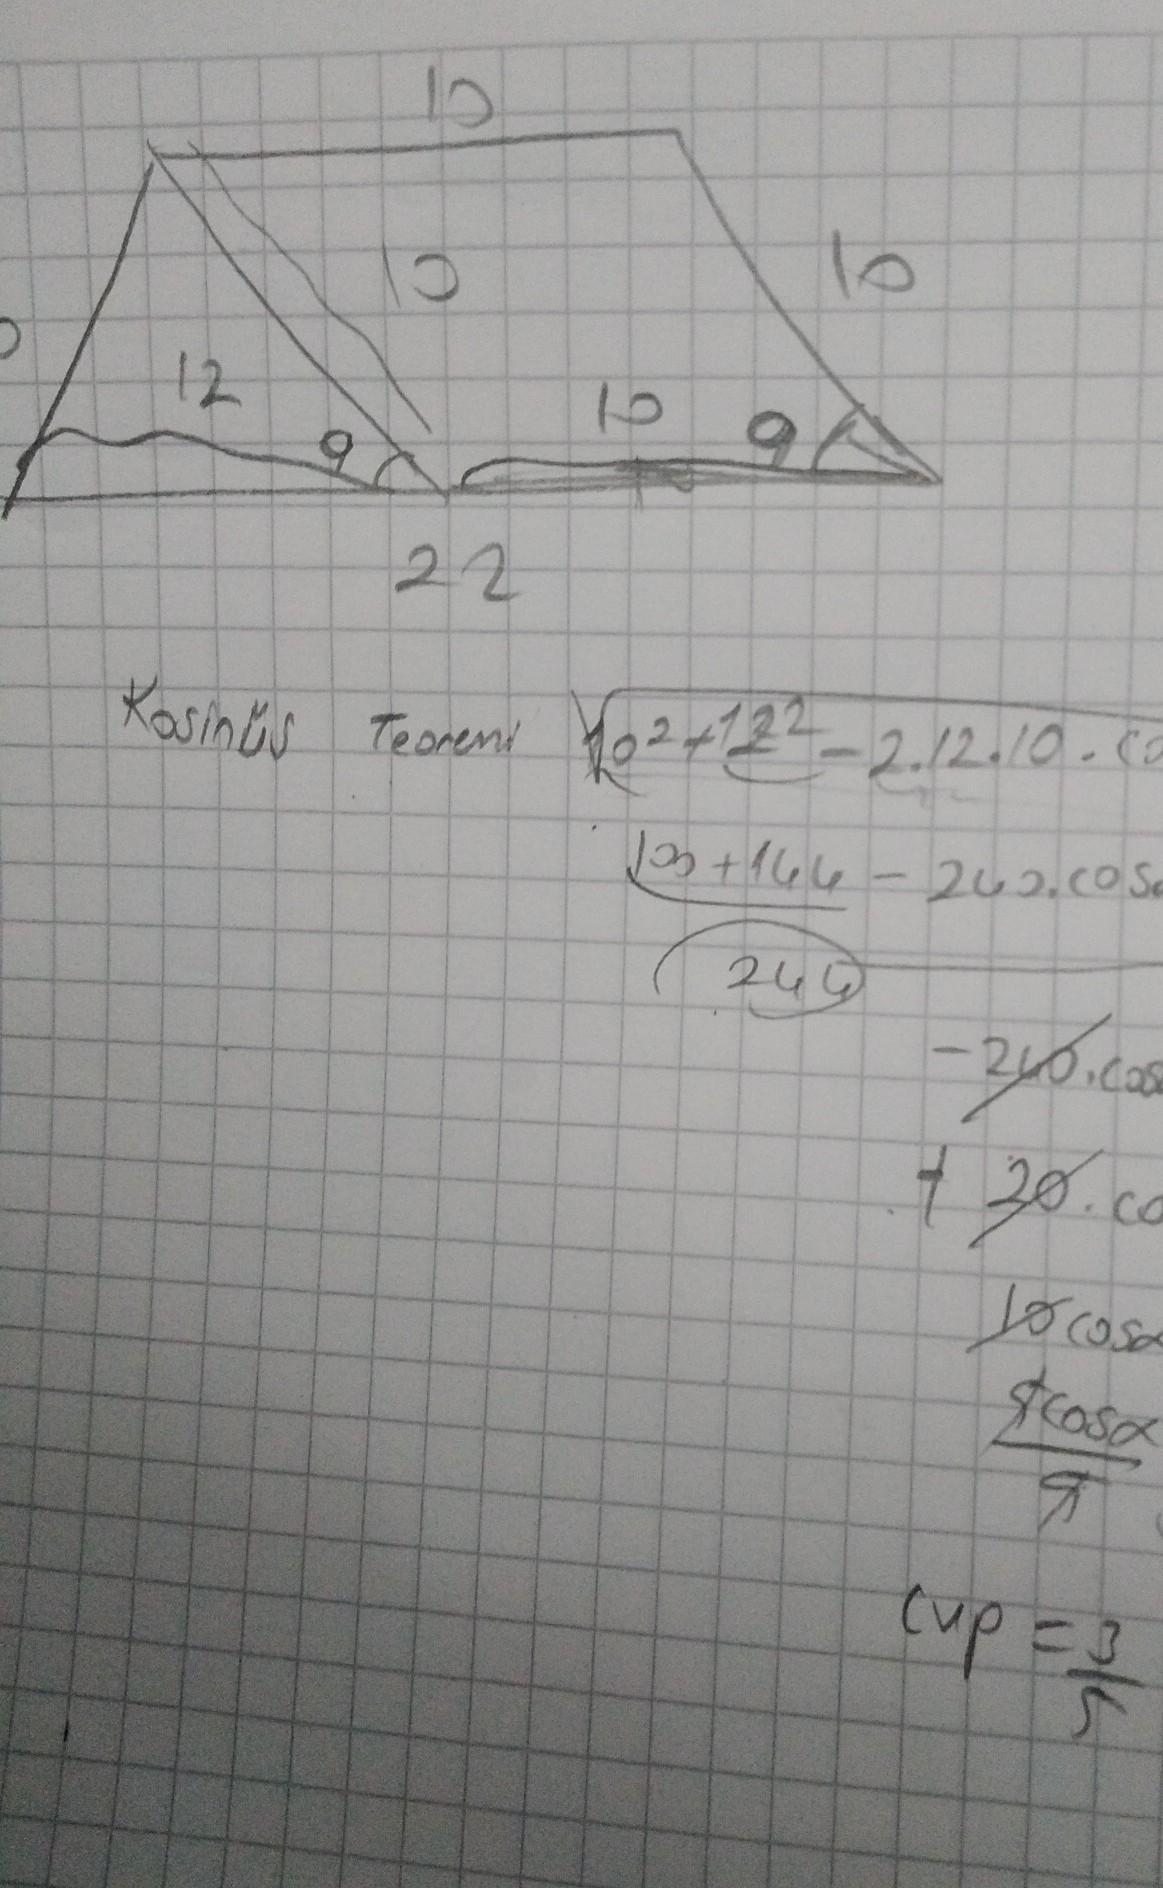 10
10
10
12
10
a
a
22
Kosinüs Teoremi √10²+12²-2.12.10.co
100+144-240.cosα
244
-240.cosα
+ 20.co
10cosα
cosα
Cvp = 3/5